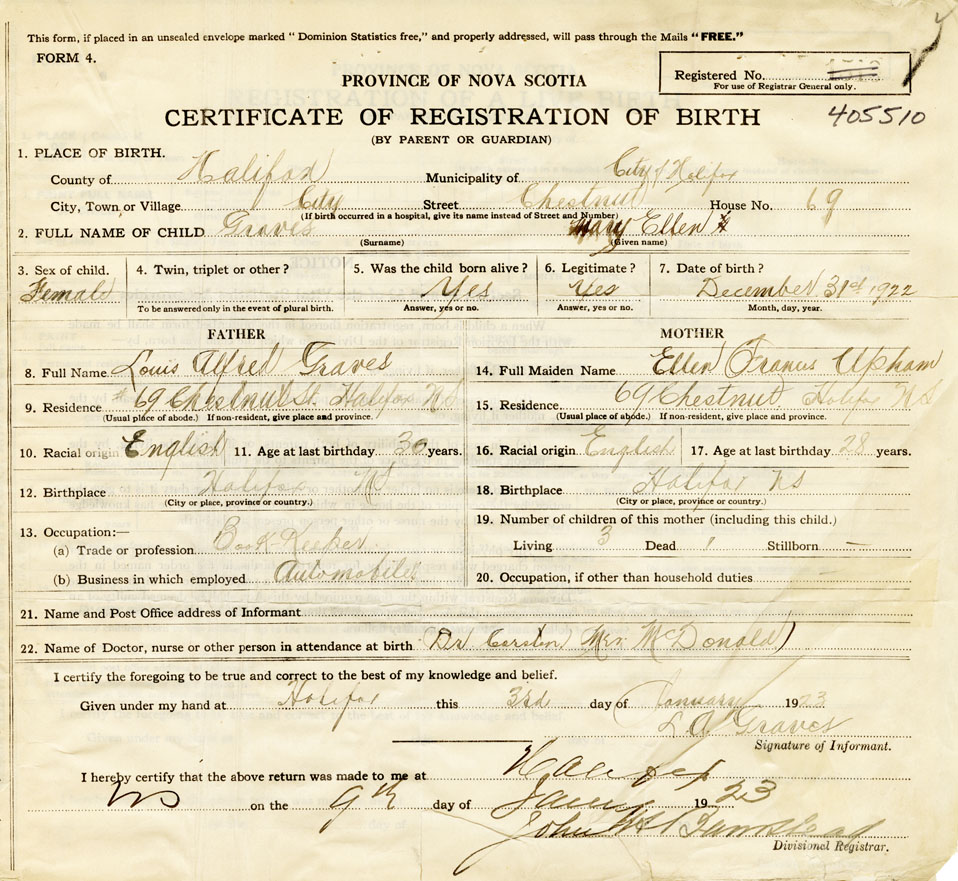 This form, if placed in an unsealed envelope marked " Dominion Statistics free," and properly addressed, will pass through the Mails "FREE."
FORM 4.
PROVINCE OF NOVA SCOTIA
Registered No.
For use of Registrar General only.
CERTIFICATE OF REGISTRATION OF BIRTH 405510
(BY PARENT OR GUARDIAN)
1. PLACE OF BIRTH.
County of Halifax Municipality of City of Halifax
City, Town or Village City Street Chestnut House No. 69
(If birth occurred in a hospital, give its name instead of Street and Number)
2. FULL NAME OF CHILD Graves Mary Ellen
(Surname) (Given name)
3. Sex of child. 4. Twin, triplet or other? 5. Was the child born alive? 6. Legitimate? 7. Date of birth?
Female Yes Yes December 31st 1922
To be answered only in the event of plural birth. Answer, yes or no. Answer, yes or no. Month, day, year.
FATHER MOTHER
8. Full Name Louis Alfred Graves 14. Full Maiden Name Ellen Francis Upham
9. Residence # 69 Chestnut St Halifax NS 15. Residence 69 Chestnut Halifax NS
(Usual place of abode.) If non-resident, give place and province. (Usual place of abode.) If non-resident, give place and province.
10. Racial origin English 11. Age at last birthday 30 years. 16. Racial origin English 17. Age at last birthday 28 years.
12. Birthplace Halifax NS 18. Birthplace Halifax NS
(City or place, province or country.) (City or place, province or country.)
13. Occupation:— 19. Number of children of this mother (including this child.)
(a) Trade or profession Book Keeper Living 3 Dead Stillborn —
(b) Business in which employed Automobiles 20. Occupation, if other than household duties
21. Name and Post Office address of Informant
22. Name of Doctor, nurse or other person in attendance at birth (Dr Mrs McDonald)
I certify the foregoing to be true and correct to the best of my knowledge and belief.
Given under my hand at Halifax this 3rd day of January 1923
L A Graves
Signature of Informant.
I hereby certify that the above return was made to me at Halifax
NS on the 9th day of 1923
John
Divisional Registrar.